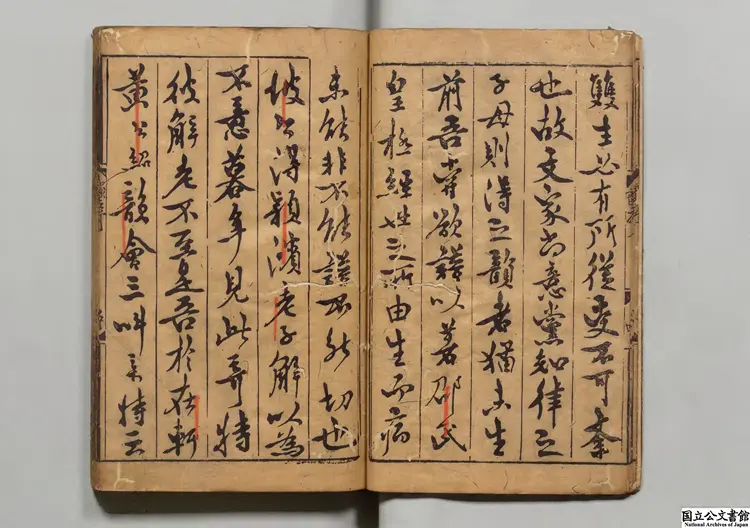 雙生必有所從受不可紊
也故文家尚意黨知律之
子母則得之韻者猶未生
前吾嘗欲譔以著邵氏
皇極經姓之所由生而病
未能非不能譔不能切也
坡公得潁濱老子解以為
不意暮年見此哥特
彼解老不至是吾於在軒
黃公紹韻會三叫來特云
国立公文書館
National Archives of Japan